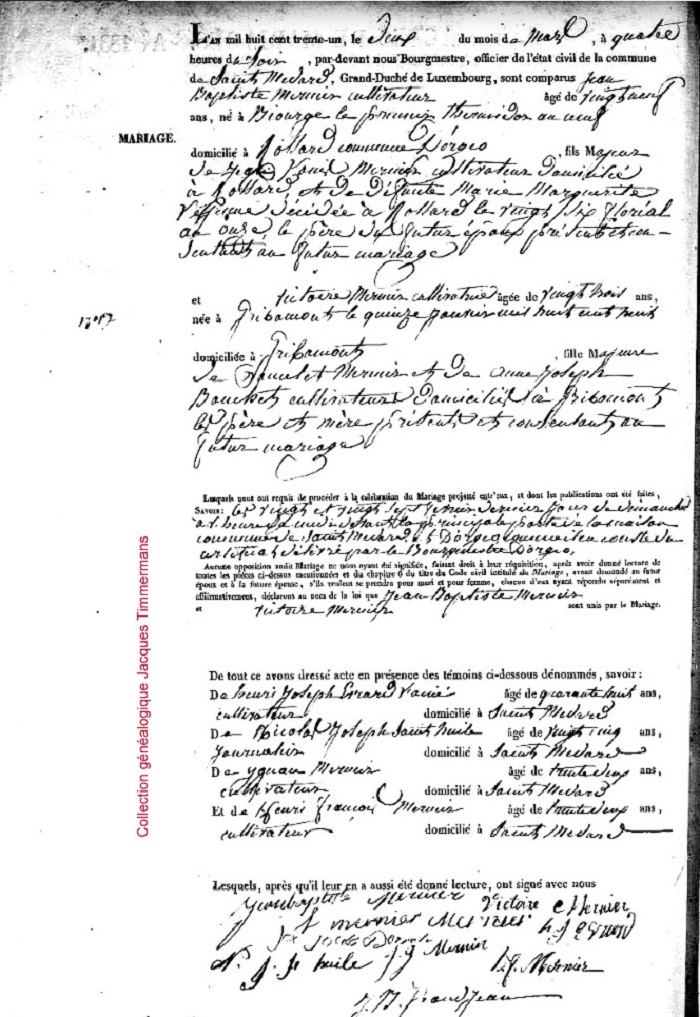 L'AN mil huit cent trente-un, le Deux du mois de Mars, à quatre
heures du Soir, par-devant nous Bourgmestre, officier de l'état civil de la commune
de Saint Medard, Grand-Duché de Luxembourg, sont comparus Jean
Baptiste Mernier cultivateur âgé de vingt neuf
ans, né à Biourge le premier thermidor an neuf
MARIAGE.
domicilié à Rossard commune D'orgeo, fils Majeur
de Mernier cultivateur Domicilié
à Rossard, et de Défunte Marie Marguerite
décédée à Rossard le vingt six floréal
an onze, le père du futur époux présent et con-
sentant au futur mariage
et Victoire Mernier cultivatrice âgée de vingt trois ans,
née à Gribomont le quinze janvier mil huit cent huit
domiciliée à Gribomont, fille Majeure
de Mernier et de anne Joseph
cultivateurs Domiciliés à Gribomont
les père et mère présents et consentants au
futur mariage
Lesquels nous ont requis de procéder à la célébration du Mariage projeté entr'eux, et dont les publications ont été faites,
SAVOIR: les vingt et vingt sept février dernier jour de dimanche
à heures du midi devant la principale porte de la maison
commune de Saint Medard, et D'orgeo comme il en conste du
certificat délivré par le Bourgmestre D'orgeo,
Aucune opposition audit Mariage ne nous ayant été signifiée, faisant droit à leur réquisition, après avoir donné lecture de
toutes les pièces ci-dessus mentionnées et du chapitre 6 du titre du Code civil intitulé du Mariage, avons demandé au futur
époux et à la future épouse, s'ils veulent se prendre pour mari et pour femme, chacun d'eux ayant répondu séparément et
affirmativement, déclarons au nom de la loi que Jean Baptiste Mernier
et Victoire Mernier sont unis par le Mariage.
De tout ce avons dressé acte en présence des témoins ci-dessous dénommés, savoir:
De henri Joseph Evrard âgé de quarante huit ans,
cultivateur domicilié à Saint Medard
De Nicolas Joseph Saint huile âgé de vingt cinq ans,
Journalier domicilié à Saint Medard
De Mernier âgé de trente deux ans,
cultivateur domicilié à Saint Medard
Et de Henri françois Mernier âgé de trente deux ans,
cultivateur domicilié à Saint Medard
Lesquels, après qu'il leur en a aussi été donné lecture, ont signé avec nous
Jean baptiste Mernier Victoire Mernier
mernier h J Evrard
N. J. St huile J J Mernier h. f. Mernier
Grandjean
Collection généalogique Jacques Timmermans